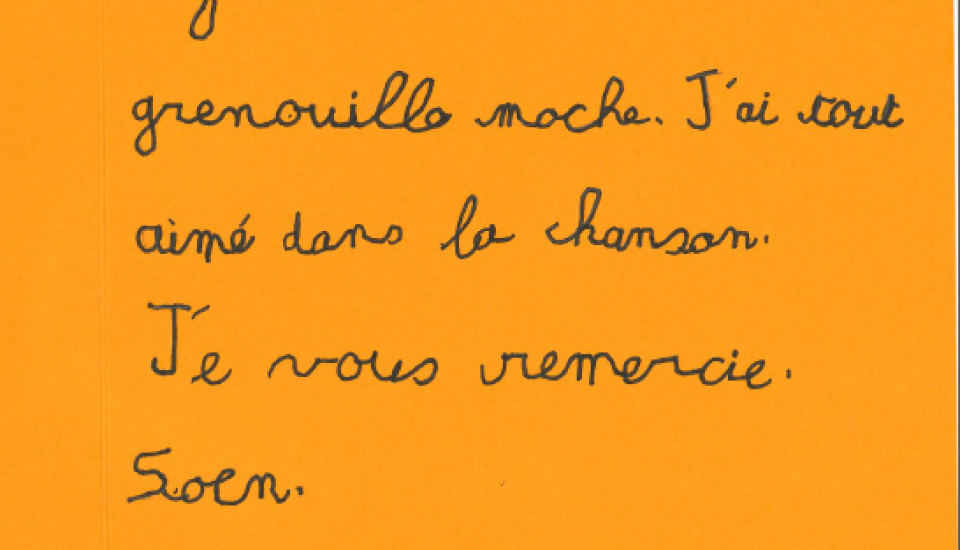 grenouille moche. J'ai tout
aimé dans la chanson.
J'e vous remercie.
Soen.